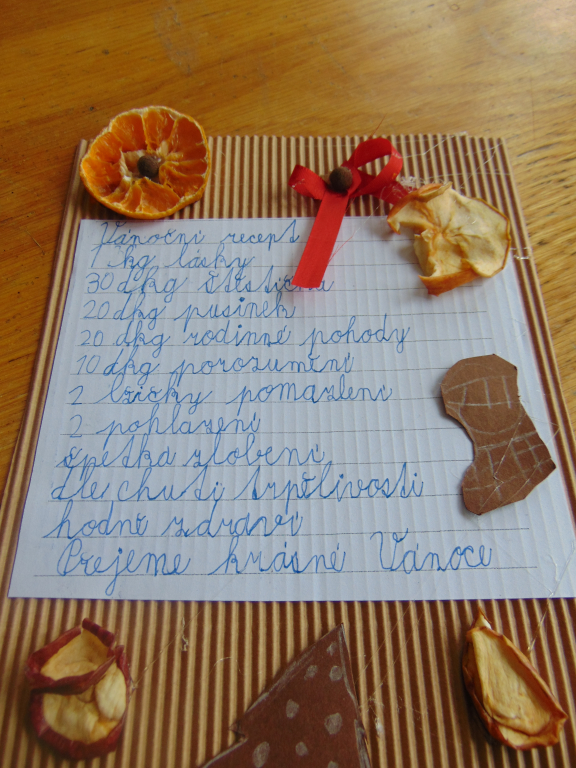 Vánoční recept
1 kg lásky
30 dkg štěstíčka
20 dkg pusinek
20 dkg rodinné pohody
10 dkg porozumění
2 lžičky pomazlení
2 pohlazení
špetka zlobení
dle chuti trpělivosti
hodně zdraví
Přejeme krásné Vánoce